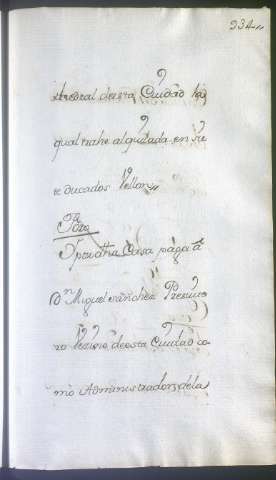 234
thedral de esta Ciudad la
qual trahe alquilada en sie
te ducados Vellon
Otro
Y por otra Casa paga a
Dn Miguel sanchez Presvite
ro Vezino de esta Ciudad co
mo Administrador de la